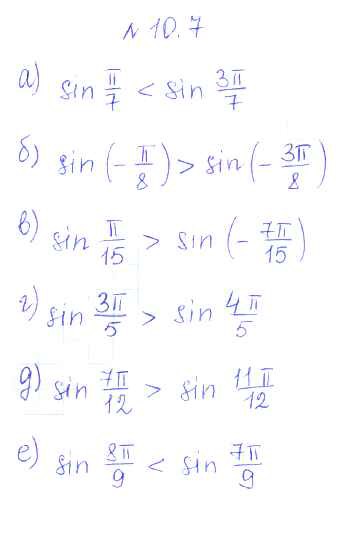 № 10.7
а) sin π/7 < sin 3π/7
б) sin (- π/8) > sin (- 3π/8)
в) sin π/15 > sin (- 7π/15)
г) sin 3π/5 > sin 4π/5
д) sin 7π/12 > sin 11π/12
е) sin 8π/9 < sin 7π/9